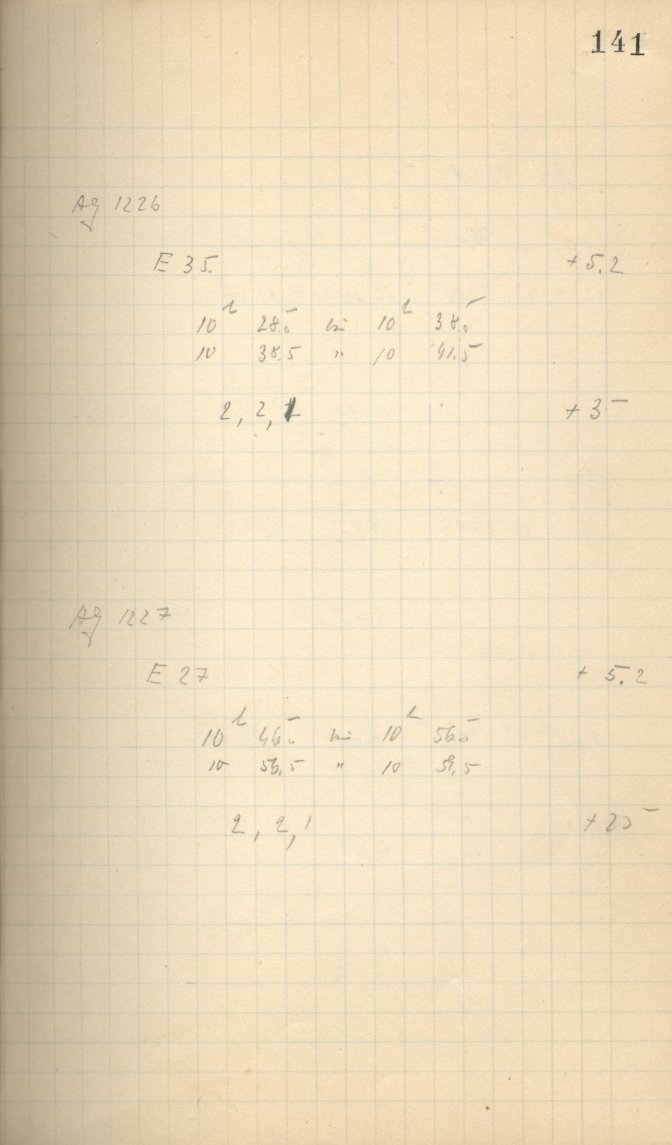 141
Ag 1226
E 35. +5.2
10 h 28.5 bis 10 h 38.5
10 38.5 " 10 41.5
2, 2, 1 +3
Ag 1227
E 27 + 5.2
10 h 46.5 bis 10 h 56.5
10 56.5 " 10 59.5
2, 2, 1